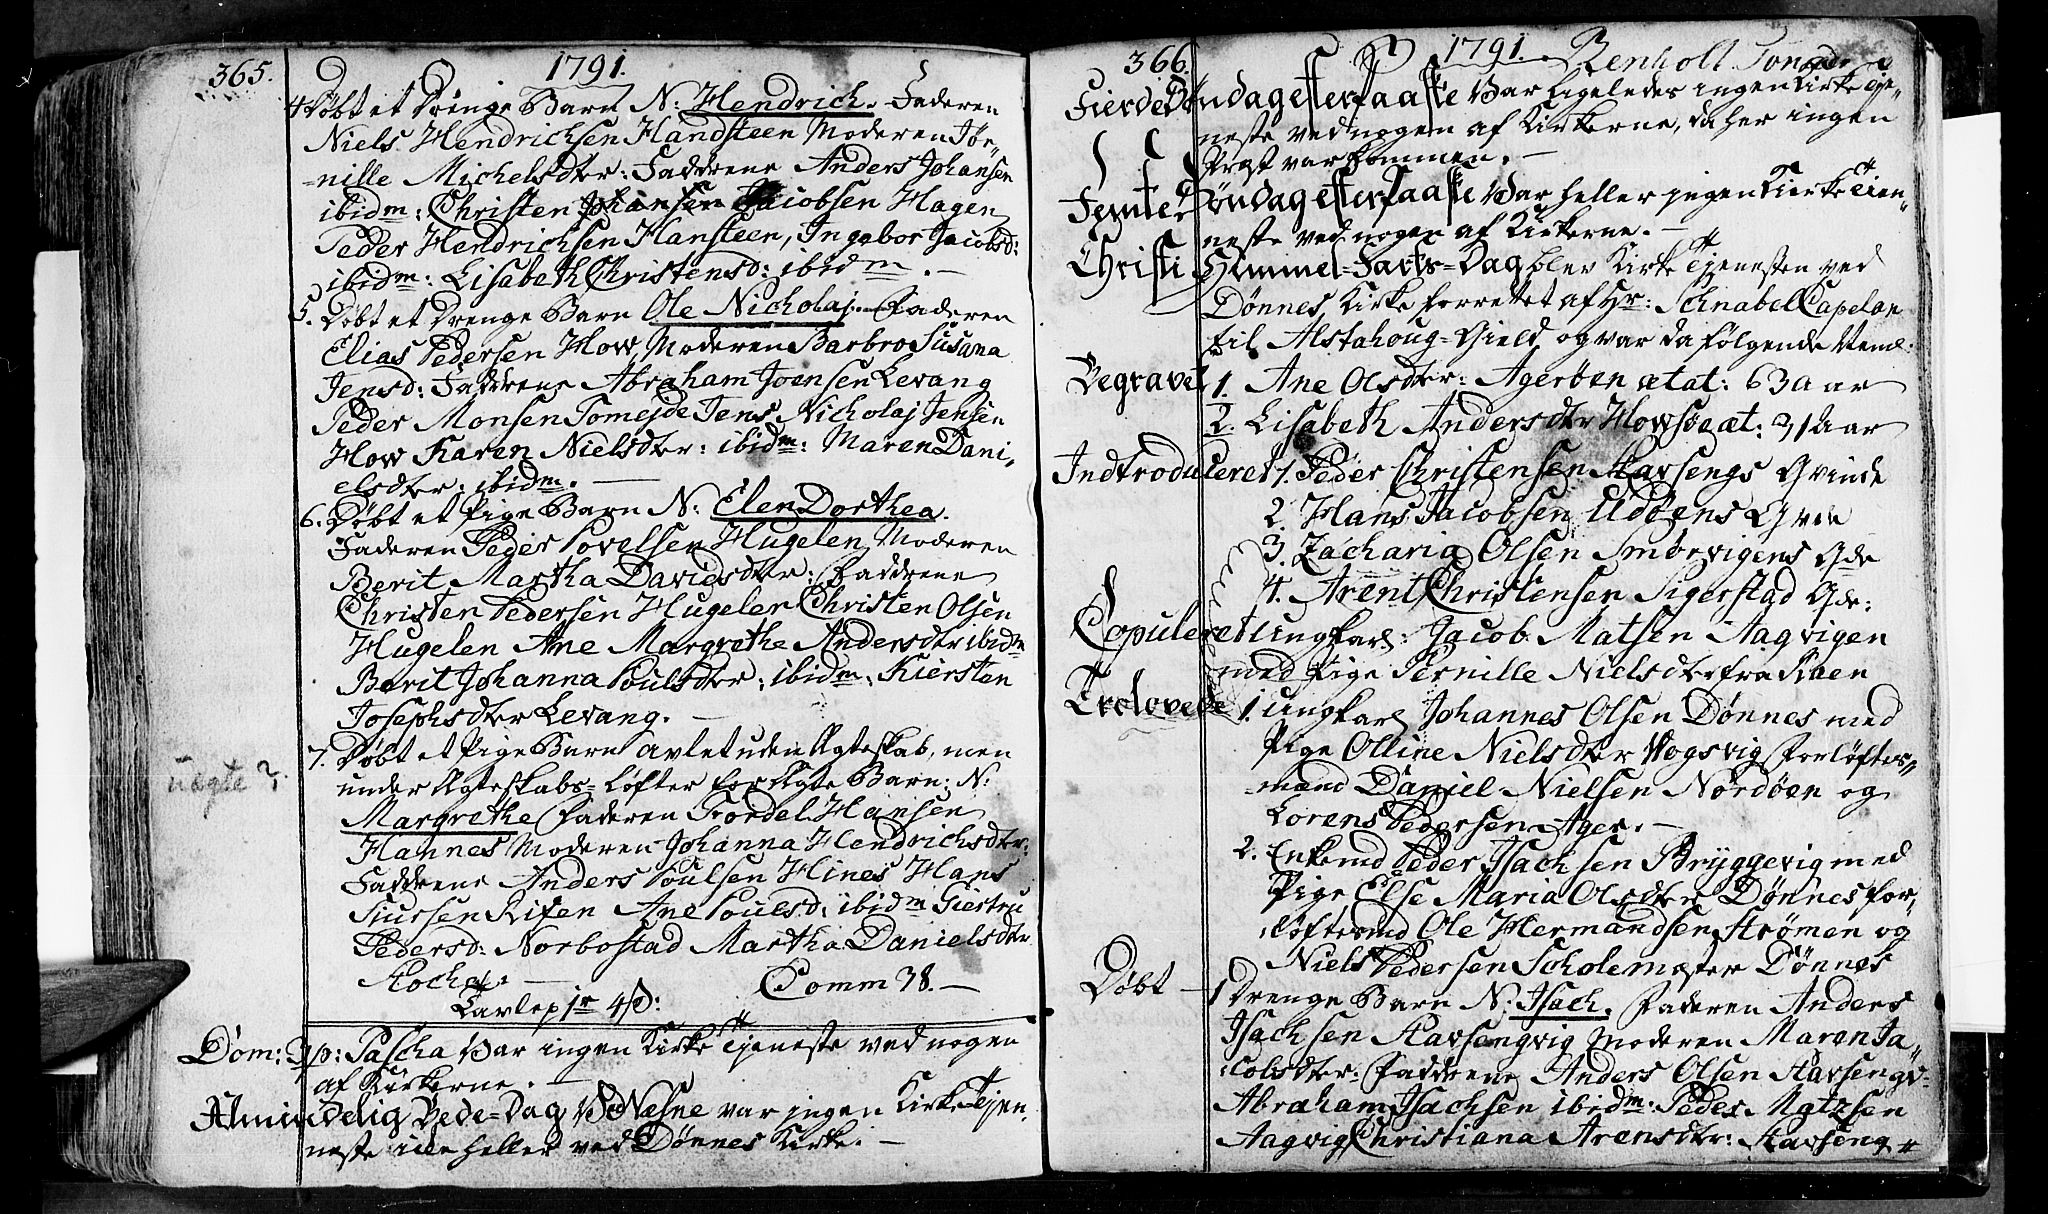 365.
1791.
4 Døbt et Drenge Barn N: Hendrich. Faderen
Niels Hendrichsen Handsteen Moderen Jør-
=nille Michelsdter: Faddrene Anders Johansen
ibidm: Christen Jacobsen Hagen
Peder Hendrichsen Hansteen, Ingebor Jacobsd:
ibidm: Lisabeth Christensd: ibidm. —
5. Døbt et Drenge Barn Ole Nicholaj. Faderen
Elias Pedersen How Moderen Barbro Susana
Jensd: Faddrene Abraham Joensen Levang
Peder Monsen Tomejde Jens Nicholaj Jensen
How Karen Nielsdter: ibidm: Maren Dani,
elsdter: ibidm. —
6. Døbt et Pige Barn N: Elen Dorthea.
Faderen Peder Povelsen Hugelen Moderen
Berit Martha Davidsdter: Faddrene
Christen Pedersen Hugelen Christen Olsen
Hugelen Ane Margrethe Andersdter ibidm
Berit Johanna Poulsdter: ibidm: Kiersten
Josephsdter Levang. —
7. Døbt et Pige Barn avlet uden Ægteskab, men
under Ægteskabs=Løfter for Ægte Barn: N:
uægte?
Margrethe Faderen Tordel Hansen
Hannes Moderen Johanna Hendrichsdter:
Faddrene Anders Poulsen Hines Hans
Siursen Rifen Ane Pouelsd: ibidm Giertru
Pedersd: Norbostad Martha Danielsdter
Comm 38. —
Dom: 3 p: Pascha Var ingen Kirke Tjeneste ved nogen
af Kirkerne. —
Almindelig Bede=Dag Ved Næsne var ingen Kirke Tjen
neste iile heller ved Dønnes Kirke. —
366.
1791.
Fierde Søndag efter Paaske Var ligeledes ingen Kirke Tje-
neste ved nogen af Kirkerne, da her ingen
Præst var kommen. —
Femte Søndag efter Paaske Var heller ingen Kirke Tien-
neste ved nogen af Kirkerne. —
Christi Himmel=Farts=Dag blev Kirke Tjenesten ved
Dønnes Kirke forrettet af Hr: Schnabel Capelan
til Alstahoug=Gield og var da følgende Neml:
Begravet 1. Ane Olsdter: Agerøen ætat: 63 aar
2. Lisabeth Andersdter Howsøe æt: 31 Aar
Indtroduceret 1. Peder Christensen Stavsengs Qvinde
2. Hans Jacobsen Udøens Qvde
3. Zacharia Olsen Smørvigens Qde
4. Arent Christensen Sigerstad Qde:
Copuleret Ungkarl: Jacob Matsen Aagvigen
med Pige Pernille Nielsdter fra Skaen
Trolovede 1. Ungkarl Johannes Olsen Dønnes med
Pige Olline Nielsdter Vogsvig Forløftes-
=mænd Daniel Nielsen Nordøen og
Lorens Pedersen Ager. —
2. Enkemd Peder Isachsen Bryggevig med
Pige Else Maria Olsdter Dønnes for-
løftesmd Ole Hermandsen Strømen og
Niels Pedersen Scholemester Dønnes
Døbt — 1 Drenge Barn N: Isach. Faderen Anders
Isachsen Stavsengvig Moderen Maren Ja-
cobsdter: Faddrene Anders Olsen Stavsengv-
Abraham Isachsen ibidm: Peder Matzsen
Aagvig Christiana Arensdter: Stavseng